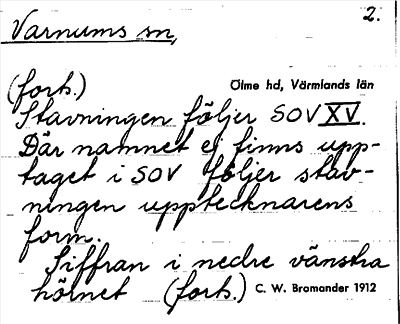 2.
Varnums sn,
(forts.) Ölme hd, Värmlands län
Stavningen följer SOV XV.
Där namnet ej finns upp-
taget i SOV följer stav-
ningen upptecknarens
form.
Siffran i nedre vänstra
hörnet (forts.) C. W. Bromander 1912